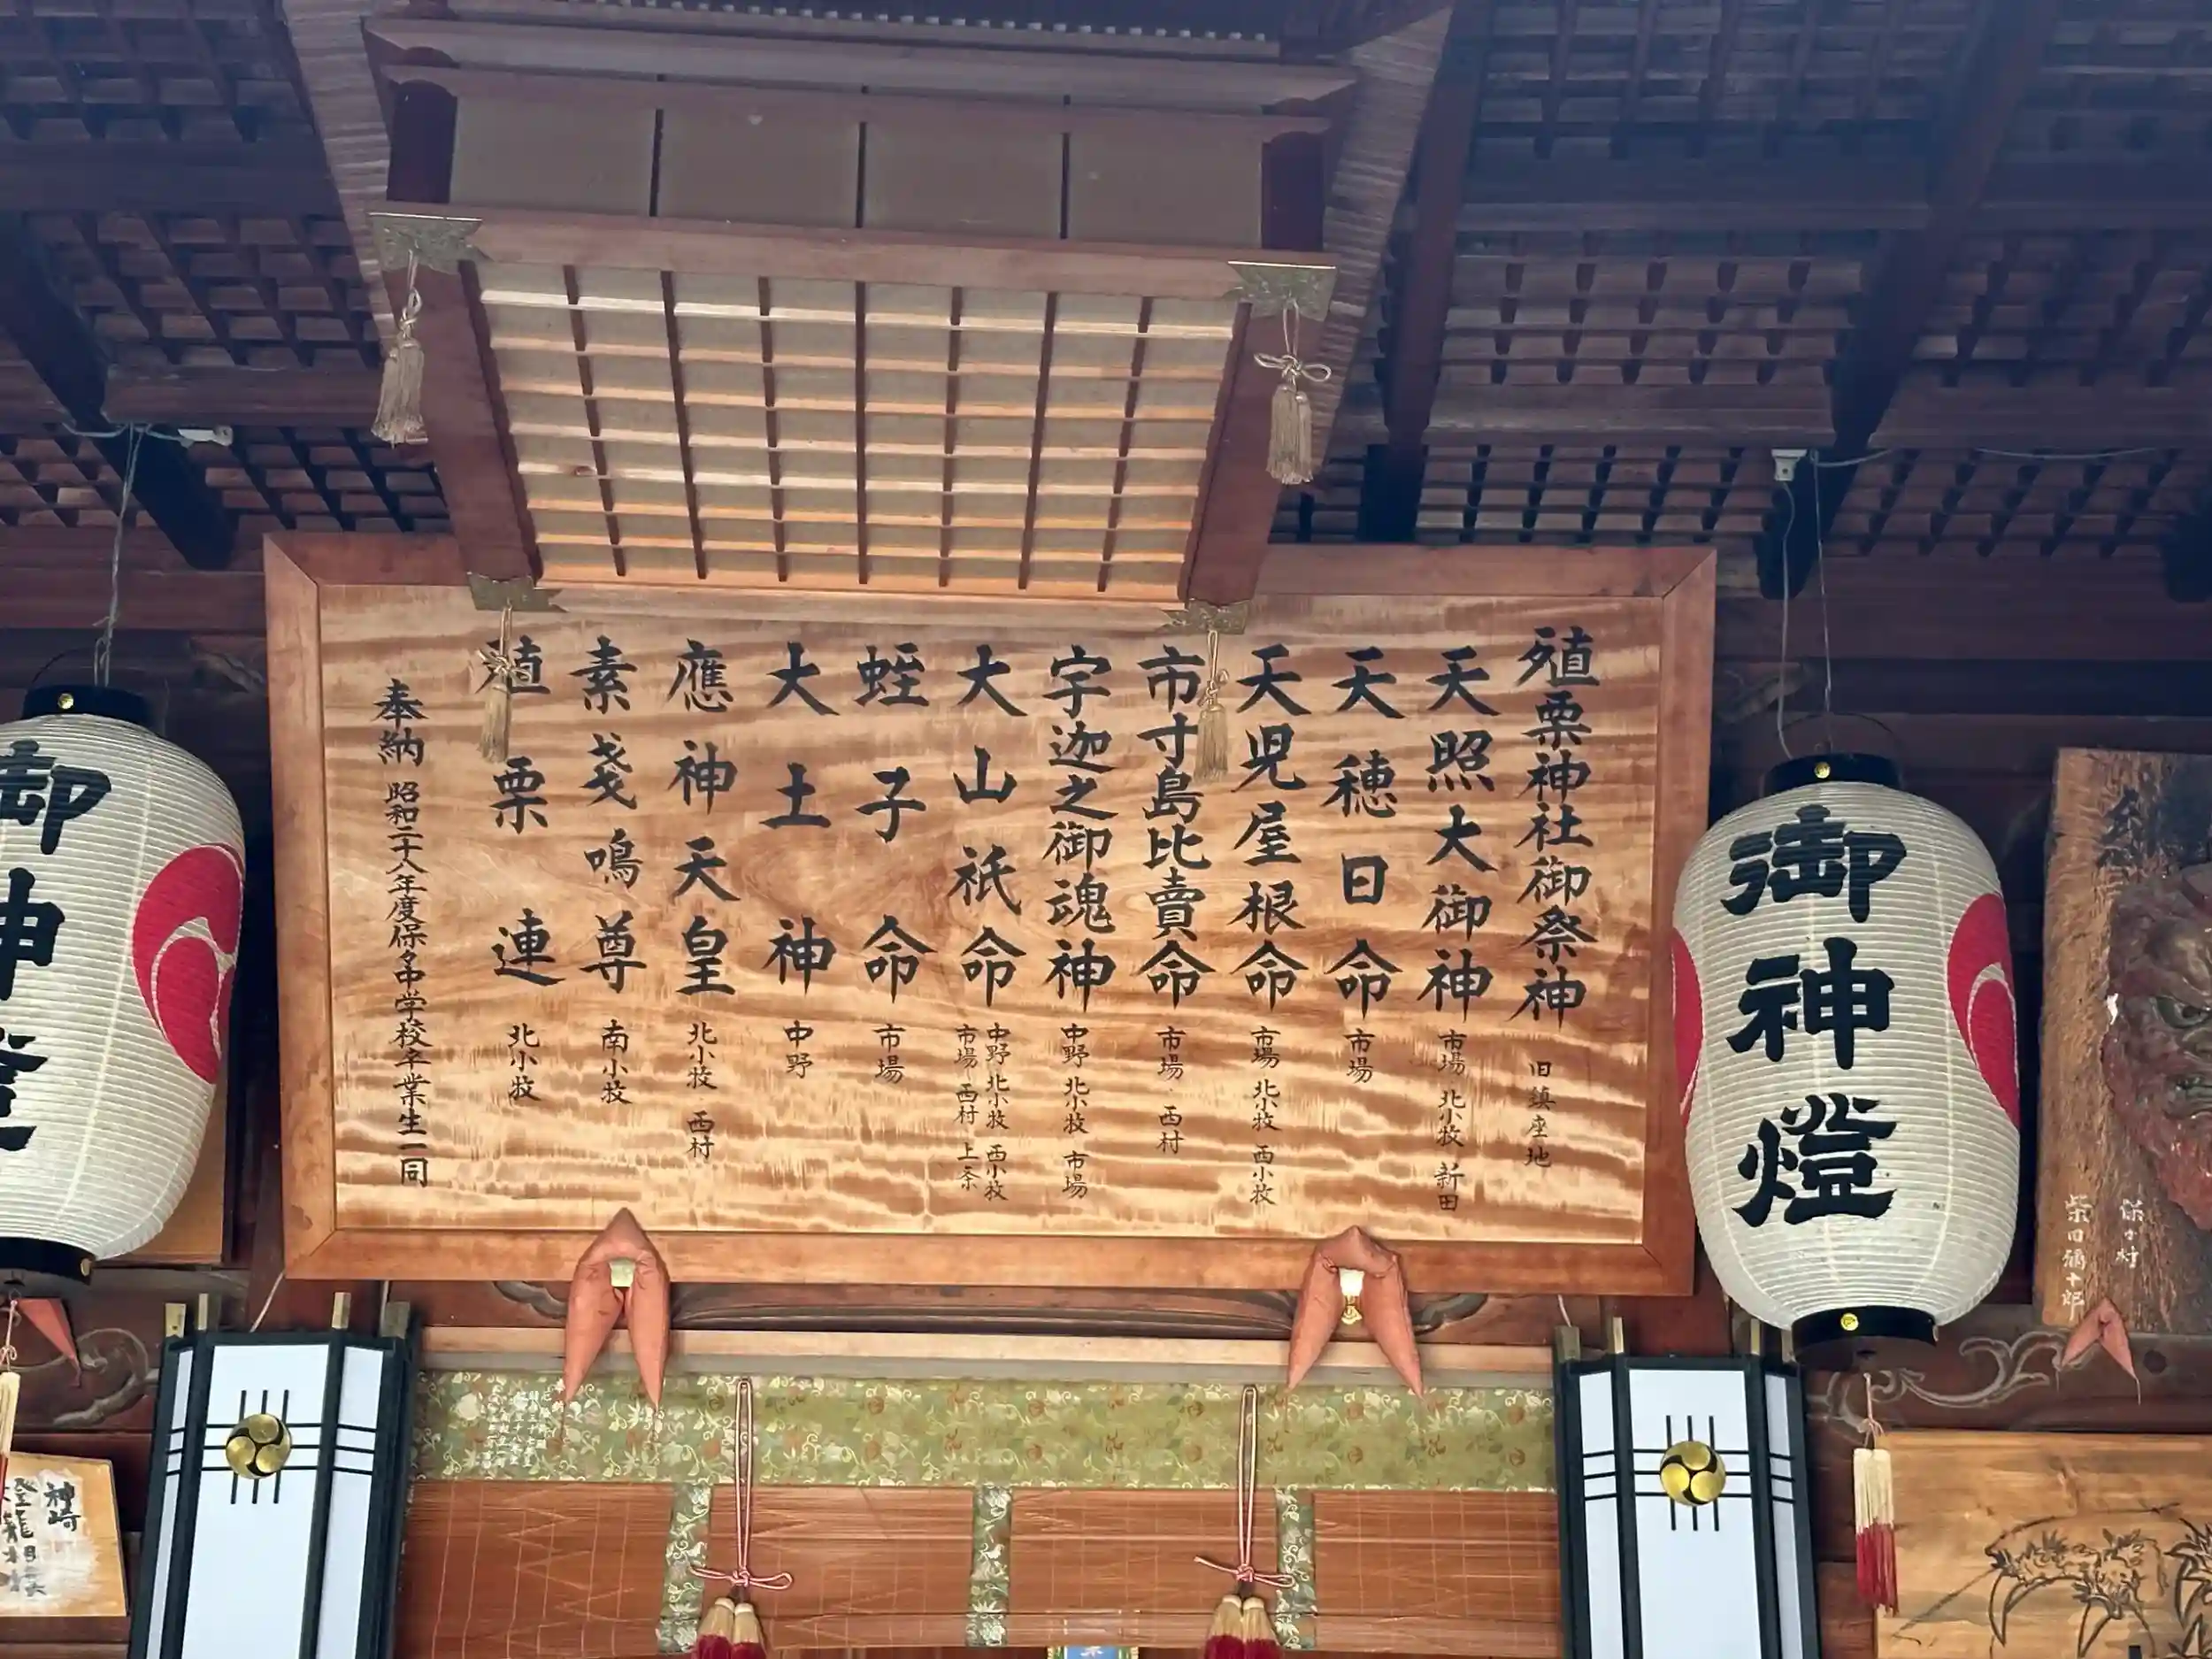 殖栗神社御祭神 旧鎮座地
天照大御神 市場 北小牧 新田
天穂日命 市場
天児屋根命 市場 北小牧 西小牧
市寸島比賣命 市場 西村
宇迦之御魂神 中野 北小牧 市場
大山祇命 中野 北小牧 西小牧
市場 西村 上条
蛭子命 市場
大土神 中野
應神天皇 北小牧 西村
素戔鳴尊 南小牧
殖栗連 北小牧
奉納 昭和二十八年度保々中学校卒業生一同
御神燈
御神燈
保々村
柴田彌十郎
神崎